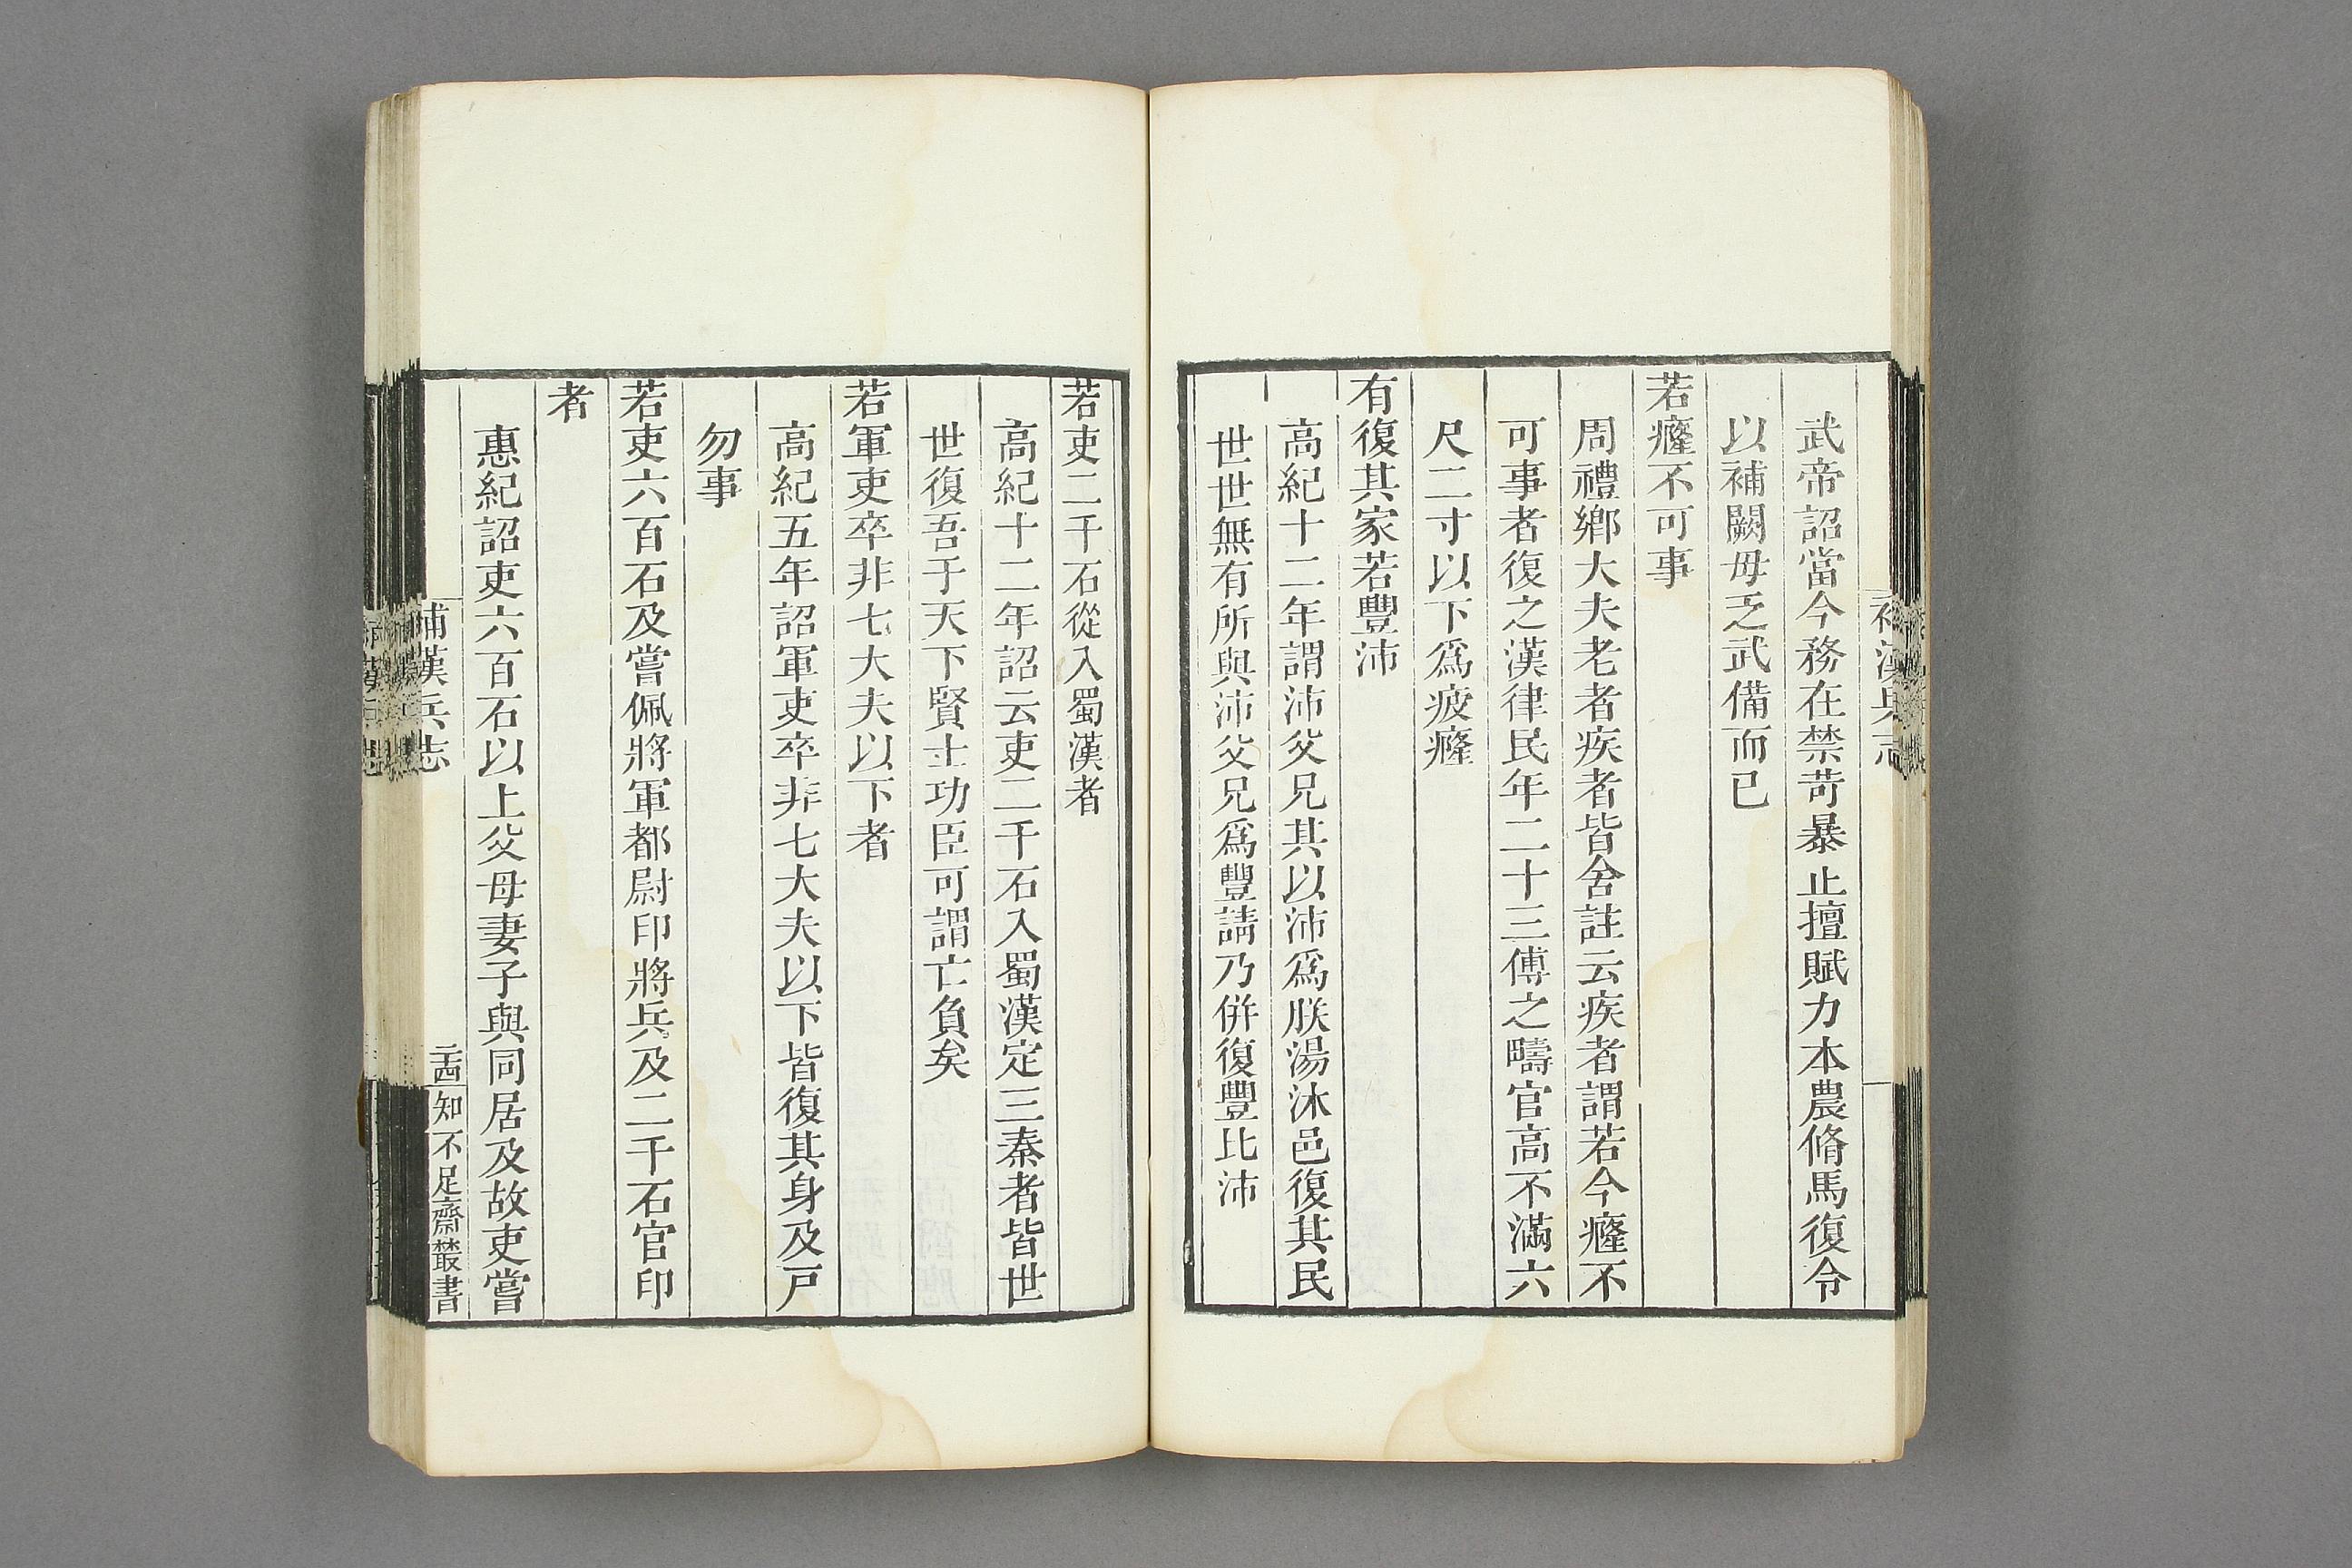 補漢兵志
武帝詔當今務在禁苛暴止擅賦力本農脩馬復令
以補闕毋乏武備而已
若癃不可事
周禮鄉大夫老者疾者皆舍註云疾者謂若今癃不
可事者復之漢律民年二十三傅之疇官高不滿六
尺二寸以下爲疲癃
有復其家若豐沛
高紀十二年謂沛父兄其以沛爲朕湯沐邑復其民
世世無有所與沛父兄爲豐請乃併復豐比沛
若吏二千石從入蜀漢者
高紀十二年詔云吏二千石入蜀漢定三秦者皆世
世復吾于天下賢士功臣可謂亡負矣
若軍吏卒非七大夫以下者
高紀五年詔軍吏卒非七大夫以下皆復其身及戸
勿事
若吏六百石及嘗佩將軍都尉印將兵及二千石官印
者
惠紀詔吏六百石以上父母妻子與同居及故吏嘗
補漢兵志
二十四
知不足齋叢書